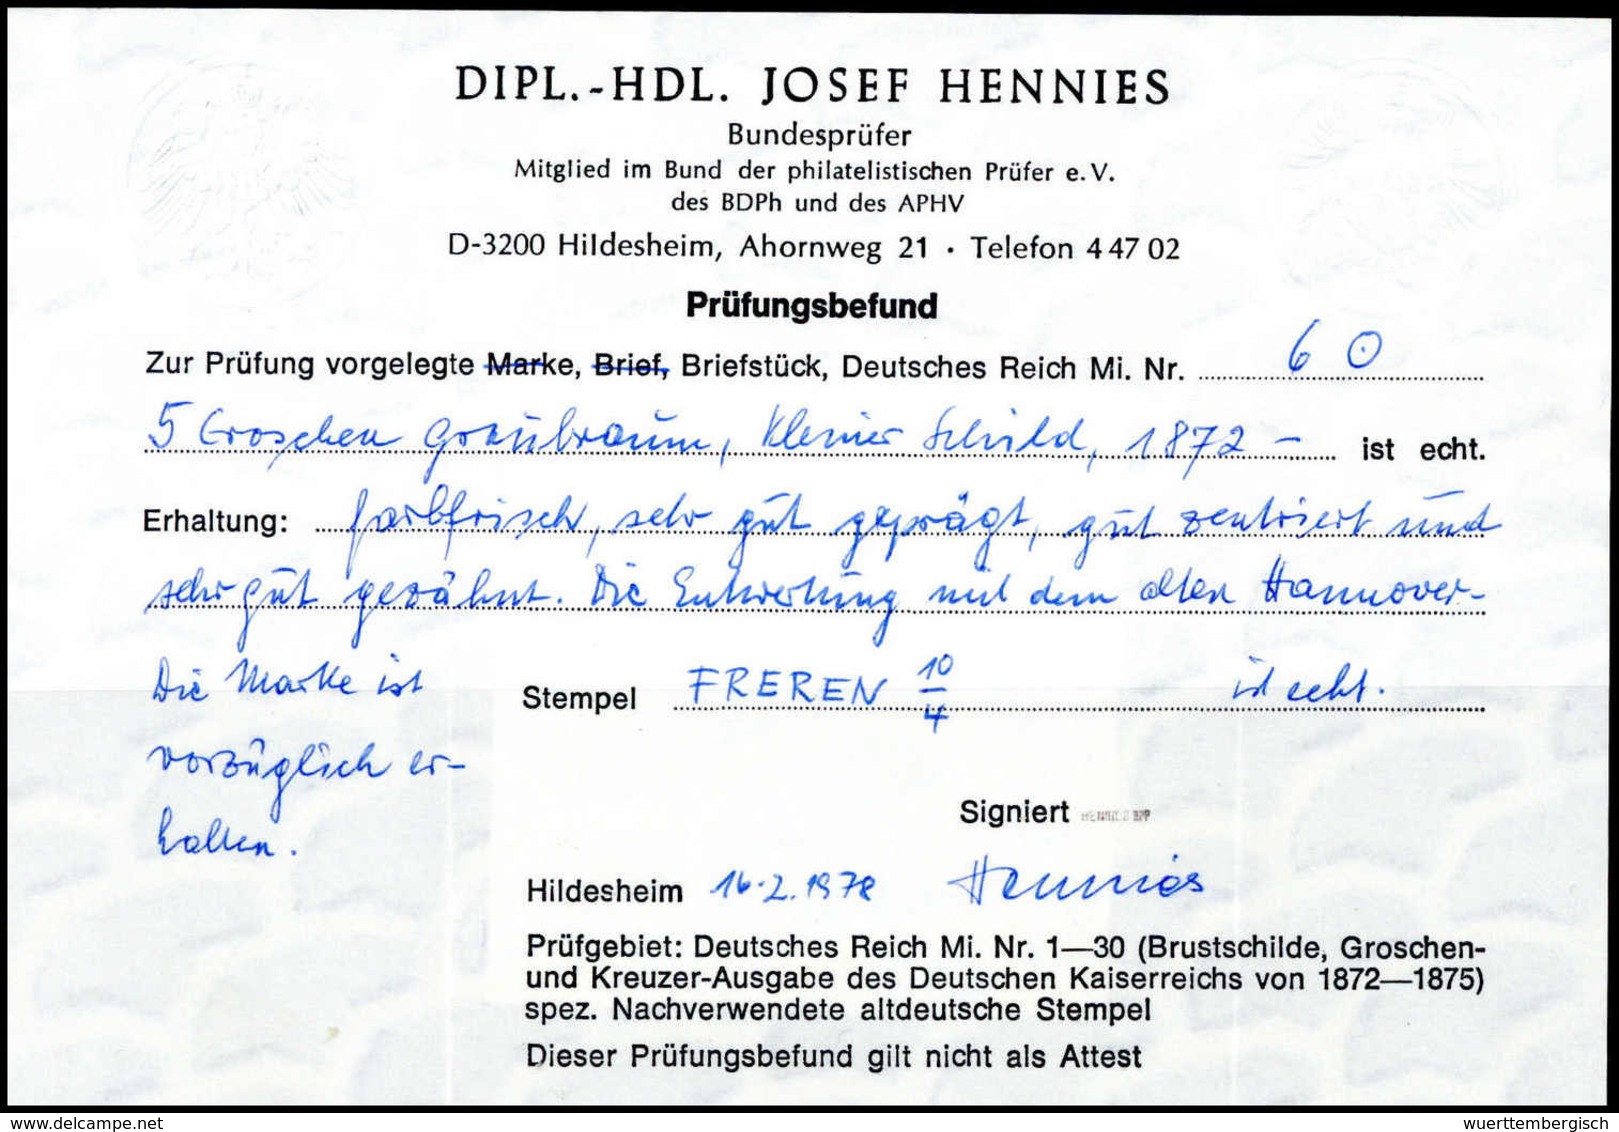 DIPL.-HDL. JOSEF HENNIES
Bundesprüfer
Mitglied im Bund der philatelistischen Prüfer e.V.
des BDPh und des APHV
D-3200 Hildesheim, Ahornweg 21 · Telefon 4 47 02
Prüfungsbefund
Zur Prüfung vorgelegte Marke, Brief, Briefstück, Deutsches Reich Mi. Nr. 6 ⊙
5 Groschen graubraun, kleiner Schild, 1872 – ist echt.
Erhaltung: farbfrisch, sehr gut geprägt, gut zentriert und
sehr gut gezähnt. Die Entwertung mit dem alten Hannover-
Stempel FREREN 10/4 ist echt.
Die Marke ist
vorzüglich er-
halten.
Signiert HENNIES BPP
Hildesheim 16.2.1978 Hennies
Prüfgebiet: Deutsches Reich Mi. Nr. 1—30 (Brustschilde, Groschen-
und Kreuzer-Ausgabe des Deutschen Kaiserreichs von 1872—1875)
spez. Nachverwendete altdeutsche Stempel
Dieser Prüfungsbefund gilt nicht als Attest
www.delcampe.net
wuerttembergisch